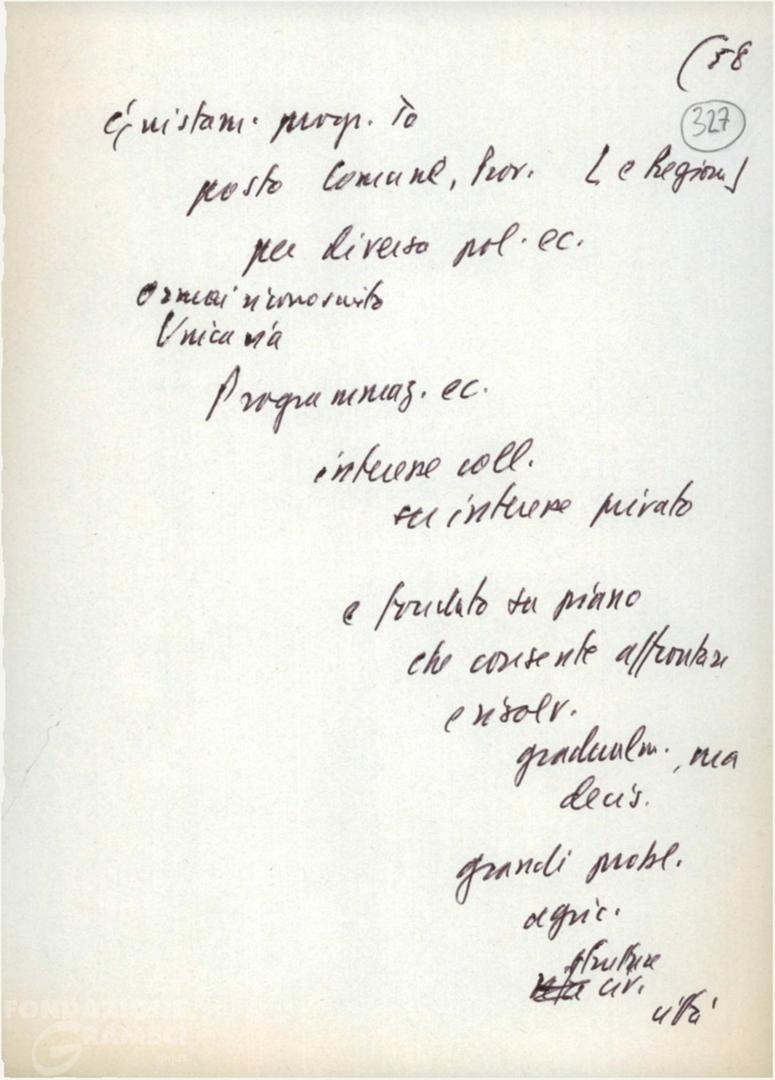 (58
327
posto Comune, Prov. [e Regioni]
per diversa pol. ec.
Ormai riconosciuto
Unica via
Programmaz. ec.
interesse coll.
su interesse privato
e fondato su piano
che consente affrontare
e risolv.
gradualm., ma
decis.
grandi probl.
agric.
strutture
civ.
città
FONDAZIONE
GRAMSCI